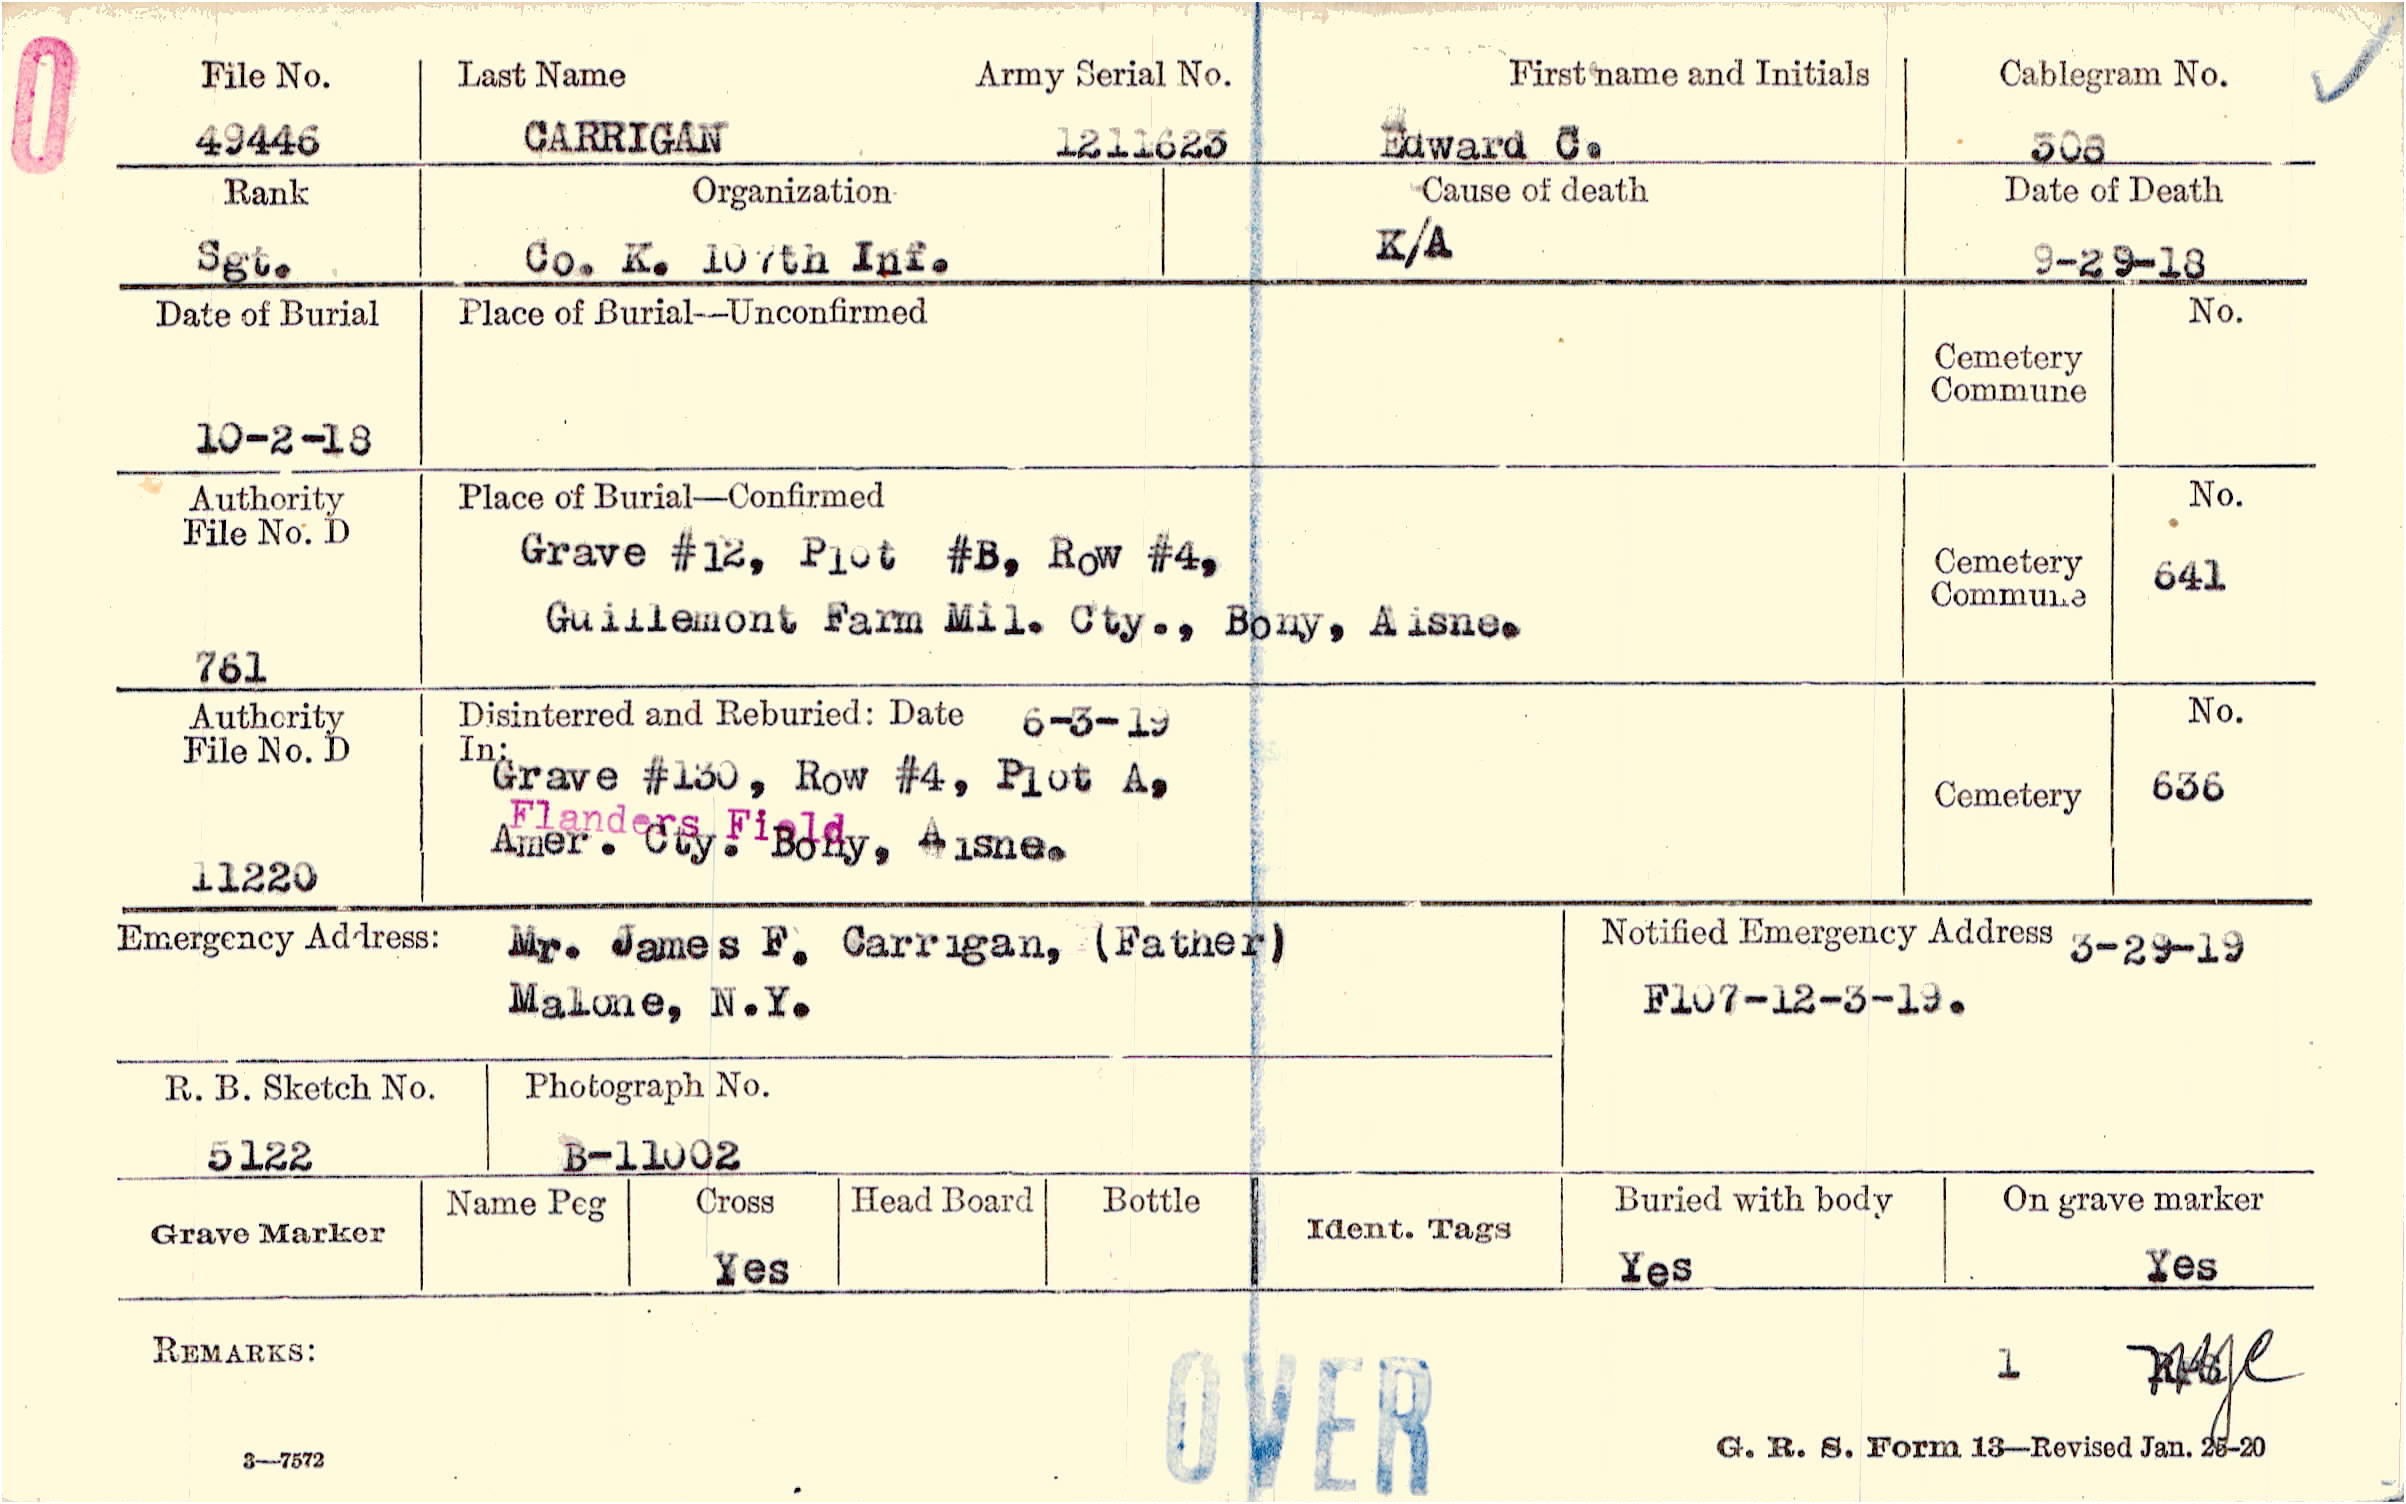 O
File No. Last Name Army Serial No. First name and Initials Cablegram No.
49446 CARRIGAN 1211623 Edward C. 308
Rank Organization Cause of death Date of Death
Sgt. Co. K. 107th Inf. K/A 9-29-18
Date of Burial Place of Burial—Unconfirmed No.
Cemetery
Commune
10-2-18
Authority Place of Burial—Confirmed No.
File No. D
Grave #12, Plot #B, Row #4,
Cemetery 641
Commune
Guillemont Farm Mil. Cty., Bony, Aisne.
761
Authority Disinterred and Reburied: Date 6-3-19 No.
File No. D In:
Grave #130, Row #4, Plot A,
Cemetery 636
Flanders Field
Amer. Cty. Bony, Aisne.
11220
Emergency Address: Mr. James F. Carrigan, (Father) Notified Emergency Address 3-29-19
Malone, N.Y. F107-12-3-19.
R. B. Sketch No. Photograph No.
5122 B-11002
Grave Marker Name Peg Cross Head Board Bottle Ident. Tags Buried with body On grave marker
Yes Yes Yes
REMARKS: 1
OVER
3—7572 G. R. S. Form 13—Revised Jan. 26-20